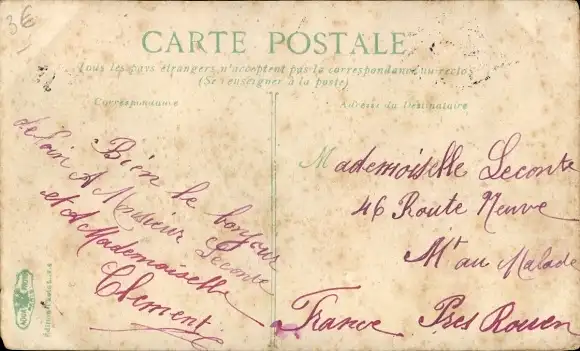 3€
CARTE POSTALE
Tous les pays étrangers n'acceptent pas la correspondance au recto
(Se renseigner à la poste)
Correspondance
Adresse du Destinataire
Bien le bonjour
de loin A Monsieur Leconte
et A Mademoiselle
Clement
Mademoiselle Leconte
46 Route Neuve
Mt au Malade
Pres Rouen
France